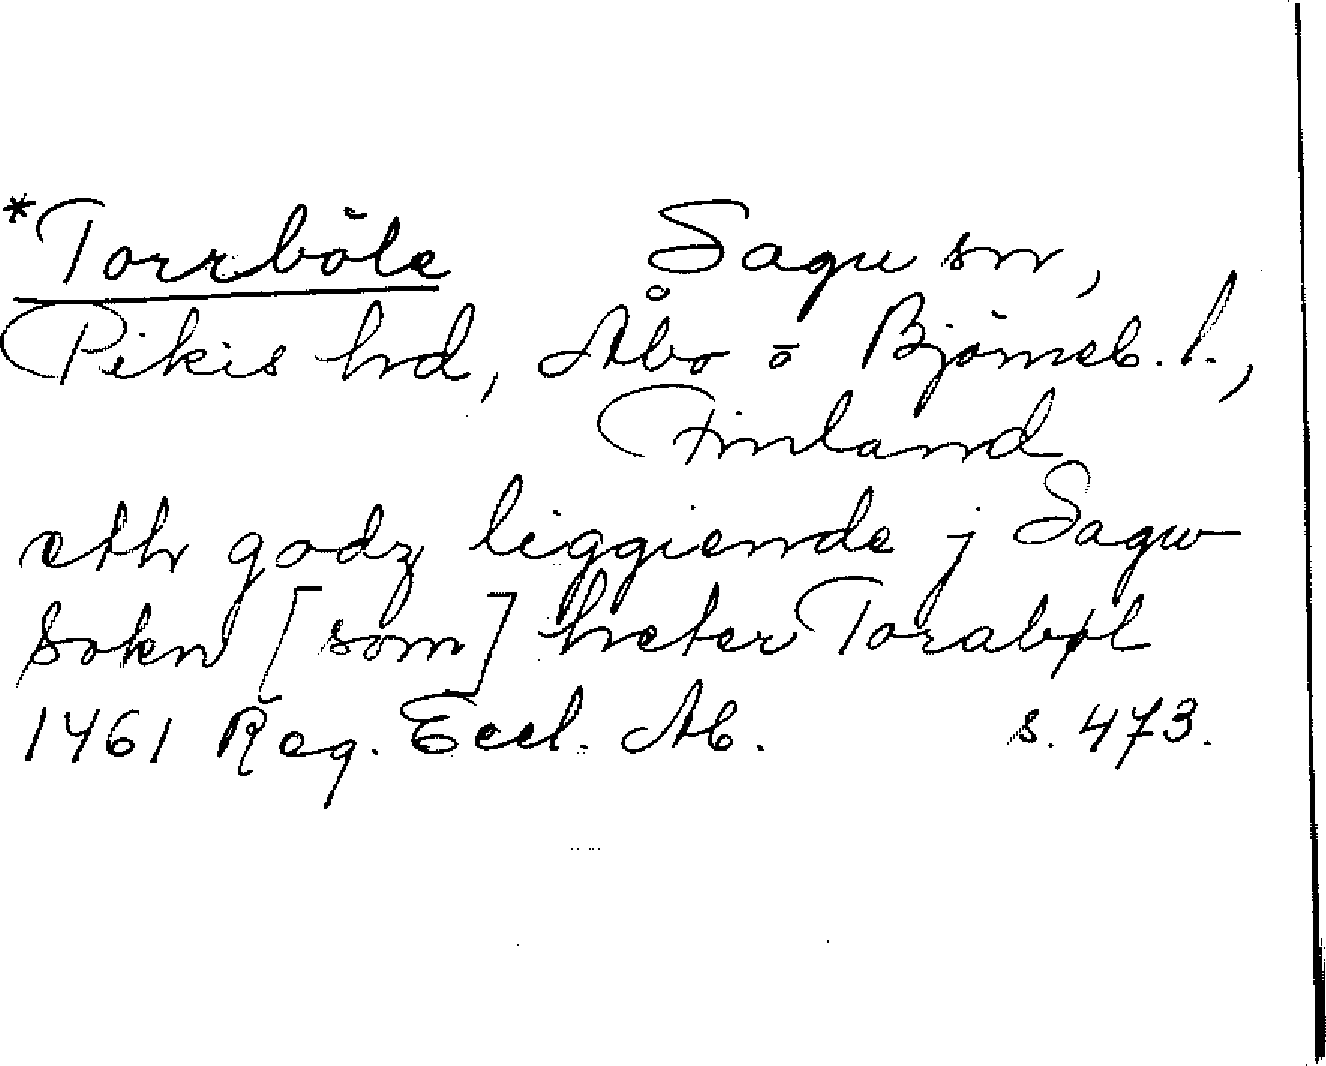 *Torrböle Sagu sn,
Pikis hd, Åbo o Björneb. l.,
Finland
eth godz liggiende j Sagw
sokn [som] heter Torabøl
1461 Reg. Eccl. Ab. s. 473.